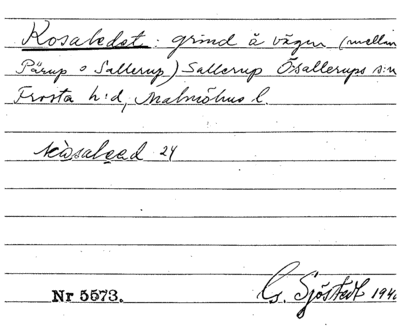 Kosaledet: grind å vägen (mellan
Pärup o Sallerup) Sallerup Ö Sallerups s:n
Frosta h:d, Malmöhus l.
24
Nr 5573.
G. Sjöstedt 194